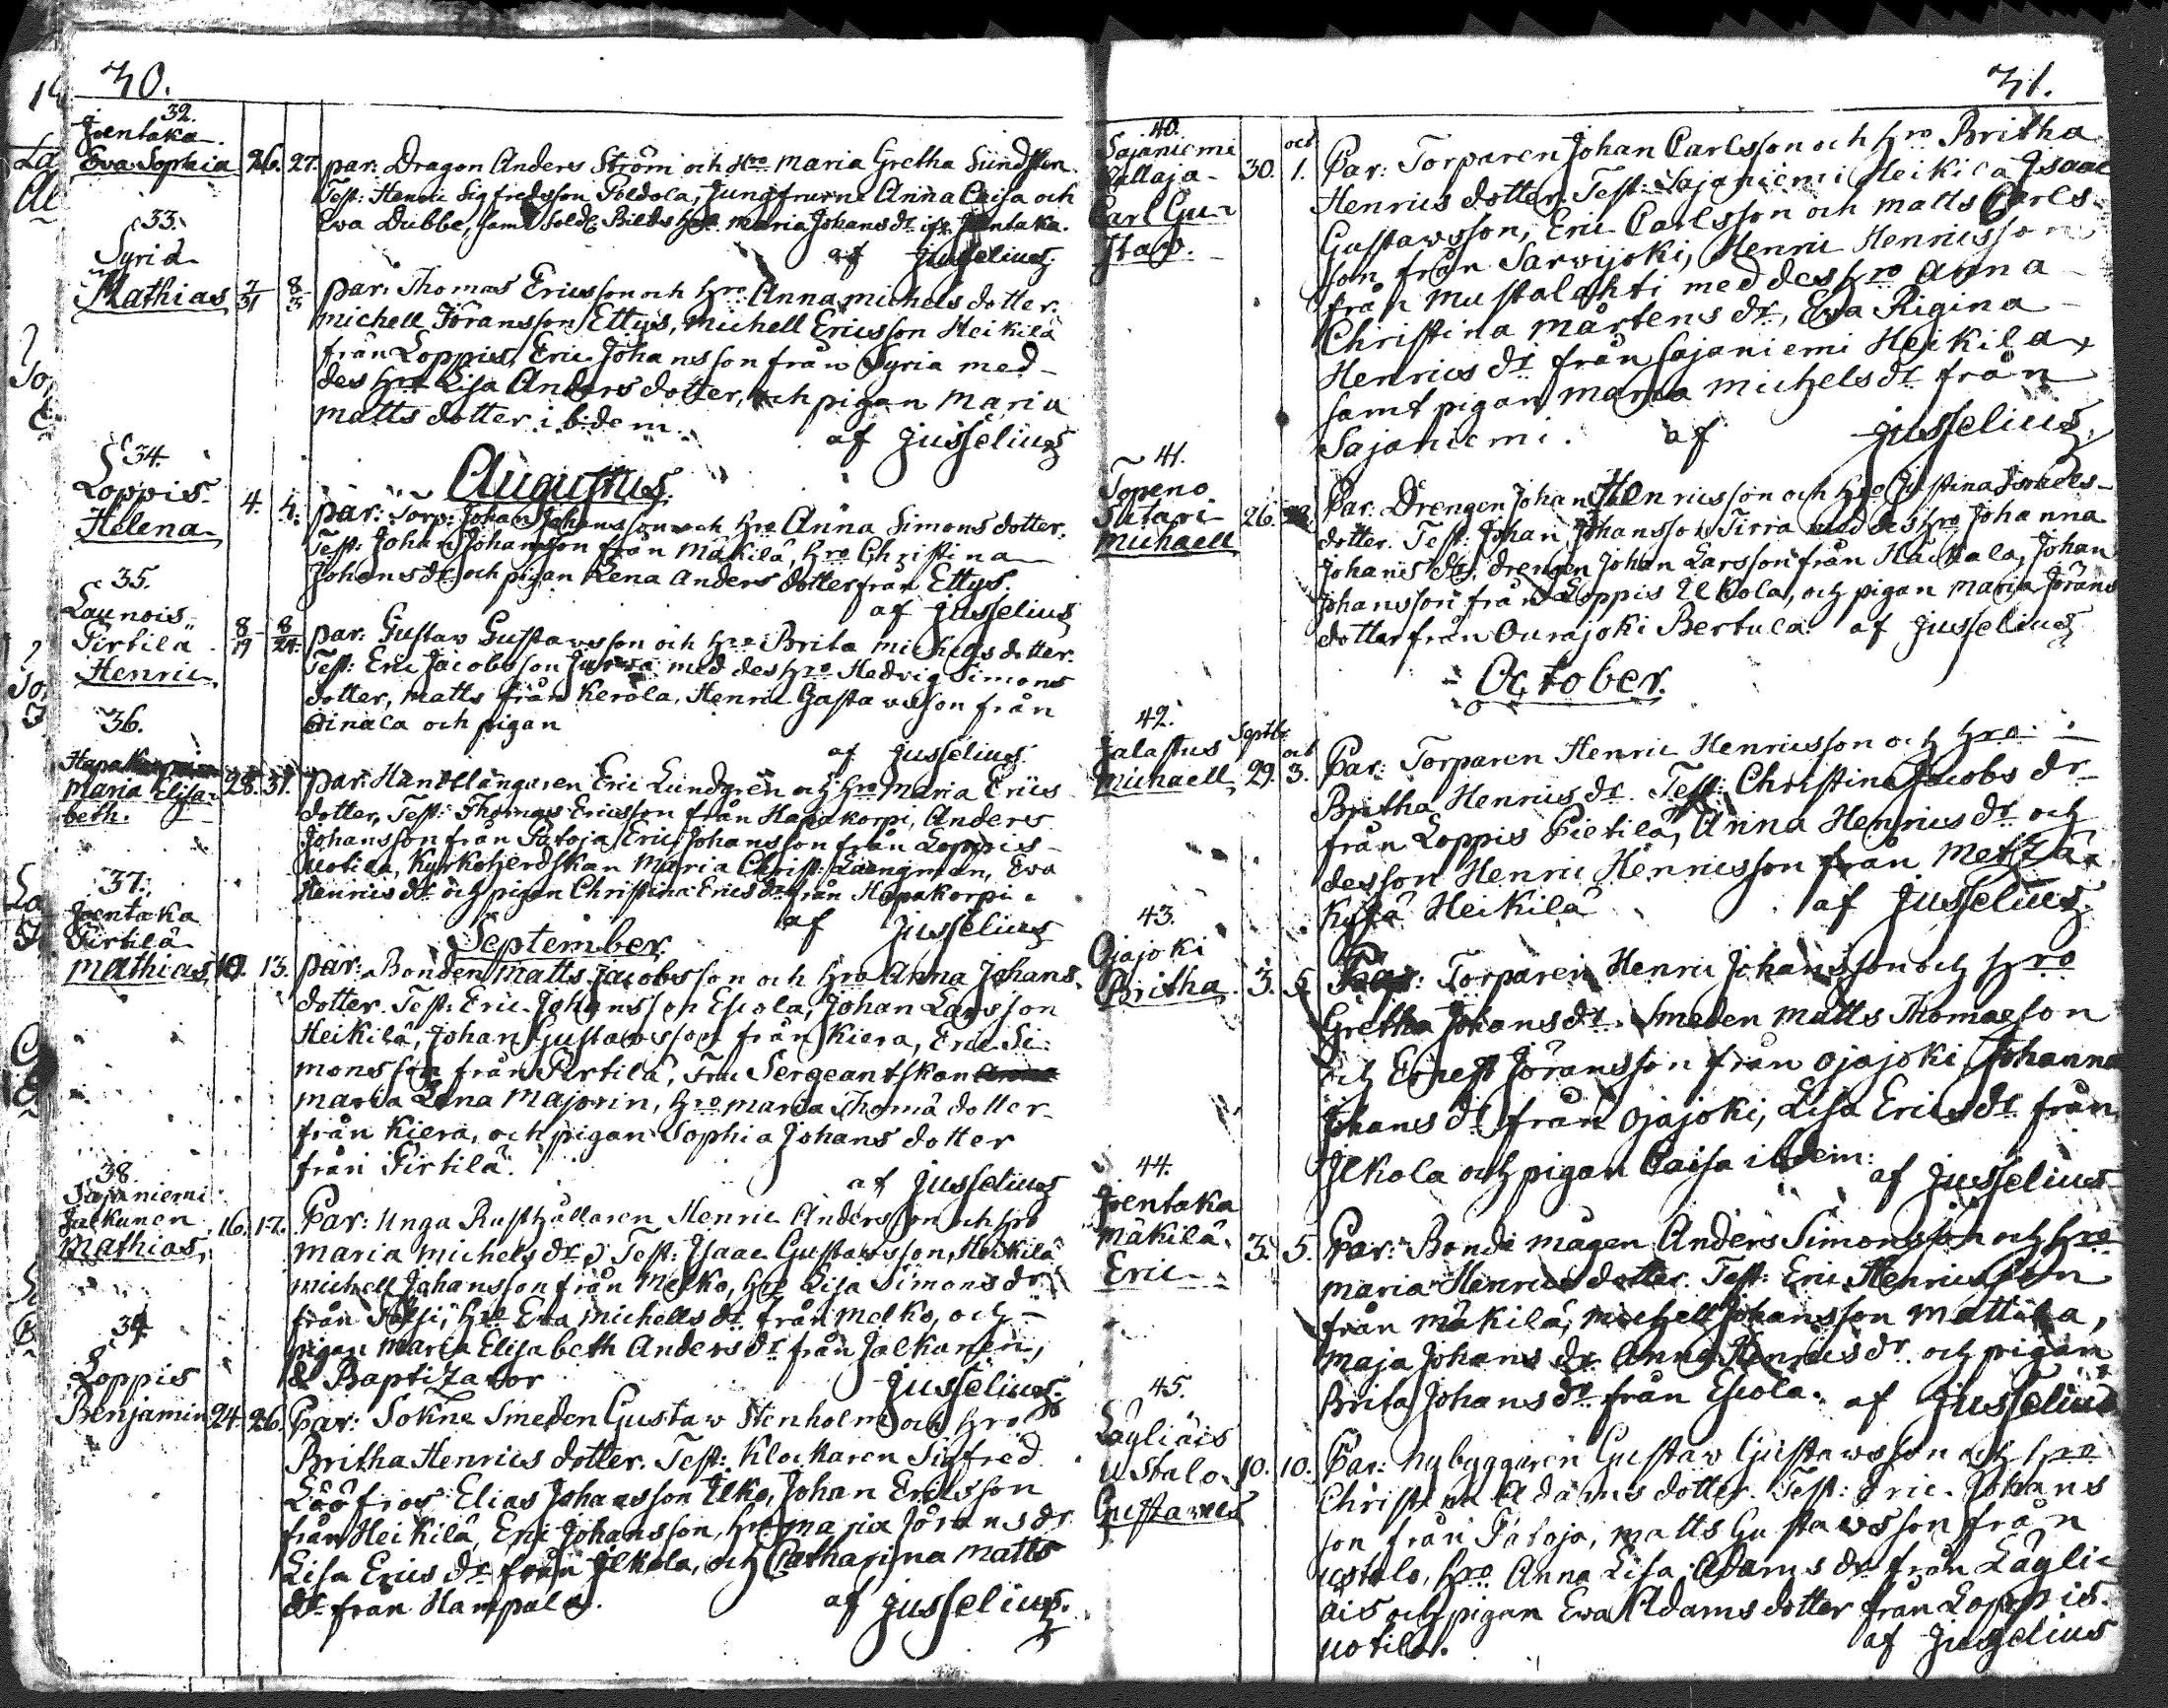 30.
32.
Joentaka
Eva Sophia 26. 27. par. Dragon Anders Ström och Hro Maria Gretha Sundsten.
Test: Henric Sigfredsson Poldola, Jungfrurne Anna Caisa och
Eva Dubbe, samt Sold: Hro Maria Johans dr ifr. Joentaka.
af Jusselius
33.
Syria
Mathias 7/31 8/3 par: Thomas Ericsson och Hro Anna Michels dotter.
Michell Jöransson Ettys, Michell Ericsson Heikilä
från Loppis, Eric Johansson från Syria med
des Hro Lisa Anders dotter, och pigan Maria
Matts dotter ibidem.
af Jusselius
Augustus.
34.
Loppis
Helena 4. 4. par: Torp: Johan Johansson och Hro Anna Simons dotter.
Test: Johan Johansson från Mäkilä, Hro Christina
Johans dr och pigan Lena Anders dotter från Ettys.
af Jusselius
35.
Launois
Pirtila
Henric 8/19 8/24 par: Gustav Gustavsson och Hro Brita Michels dotter.
Test: Eric Jacobsson med des Hro Hedvig Simons
dotter, Matts från Kerola, Henric Gustavsson från
och pigan
af Jusselius
36.
Maria Elisa-
beth. 28. 31. par: Handtlangaren Eric Lundgren och Hro Maria Erics
dotter, Test: Thomas Ericsson från Hapakorpi, Anders
Johansson från Patoja, Eric Johansson från Loppis
Uotila, Kyrkoherdskan Maria Christ: Laengman, Eva
Henrics dr och pigan Christina Erics dr från Hapakorpi.
af Jusselius
September.
37.
Joentaka
Pirtilä
Mathias 10. 13. par: Bonden Matts Jacobsson och Hro Anna Johans
dotter. Test: Eric Johansson Escola, Johan Larsson
Heikilä, Johan Gustavsson från Kiera, Eric Si-
monsson från Pirtilä, Fru Sergeantskan
Maria Lena Majorin, Hro Maria Thomä dotter
från Kiera, och pigan Sophia Johans dotter
från Pirtilä.
af Jusselius
38.
Sajaniemi
Jalkanen
Mathias 16. 17. Par: Unga Rusthållaren Henric Andersson och Hro
Maria Michels dr Test: Isaac Gustavsson, Heikilä
Michell Johansson från Melko, Hro Lisa Simons dr
från Hro Eva Michells dr från Melko, och
pigan Maria Elisabeth Anders dr från Jalkanen,
Baptizator Jusselius.
39.
Loppis
Benjamin 24. 26. Par: Sokne Smeden Gustav Stenholm och Hro
Britha Henrics dotter. Test: Klockaren Sigfred
Elias Johansson Ilko, Johan Ericsson
från Heikilä, Eric Johansson, Hro Maria Jörans dr
Lisa Erics dr från Ilkola, och Catharina Matts
dr från Hampala.
af Jusselius.
31.
40.
Sajaniemi
Callaja
Carl Gu-
stav. 30. oct 1. Par: Torparen Johan Carlsson och Hro Britha
Henrics dotter. Test: Sajaniemi Heikila Isaac
Gustavsson, Eric Carlsson och Matts Carls-
son från Sarvijoki, Henric Henricsson
från Mustalahti med des Hro Anna
Christina Mårtens dr, Eva Rigina
Henrics dr från Sajaniemi Heikila,
samt pigan Maria Michels dr från
Sajaniemi. af Jusselius
41.
Topeno
Sutari
Michaell 26. Par: Drengen Johan Henricsson och Hro Justina Israels
dotter. Test: Johan Johansson Tirra med des Hro Johanna
Johans dr, drengen Johan Larsson från Johan
Johansson från Loppis Ilkola, och pigan Maria Jörans
dotter från Ourajoki Bertula. af Jusselius
October.
42.
Jalastus
Michaell Septbr 29. oct 3. Par: Torparen Henric Henricsson och Hro
Britha Henrics dr. Test: Christina Jacobs dr
från Loppis Pietilä, Anna Henrics dr och
desson Henric Henricsson från Metzä
Kylä Heikilä af Jusselius
43.
Ojajoki
Britha 3. 5. Par: Torparen Henric Johansson och Hro
Gretha Johans dr. Smeden Matts Thomasson
och Ernest Jöransson från Ojajoki, Johanna
Johans dr från Ojajoki, Lisa Erics dr från
Ilkola och pigan Caisa ibidem.
af Jusselius
44.
Joentaka
Mäkilä
Eric 3. 5. Par: Bonde Mågen Anders Simonsson och Hro
Maria Henrics dotter. Test: Eric Henricsson
från Mäkilä, Michell Johansson Mattila,
Maja Johans dr Anna Henrics dr och pigan
Brita Johans dr från Escola. af Jusselius
45.
Lägliäis
Ustalo
Gustavus 10. 10. Par: Nybyggaren Gustav Gustavsson och Hro
Christina Adams dotter. Test: Eric Johans
son från Patoja, Matts Gustavsson från
Ustalo, Hro Anna Lisa Adams dr från Lägli-
äis och pigan Eva Adams dotter från Loppis
Uotila. af Jusselius